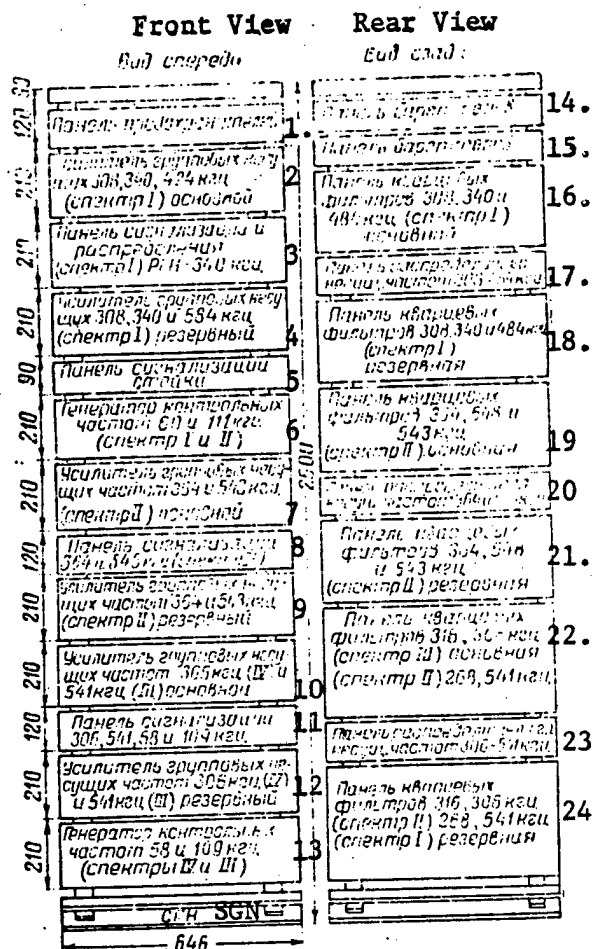 Front View
Вид спереди
30
120
Панель
1.
210
Усилитель групповых несу
щих 308, 340, 484 кгц
(спектр I) основной
2
210
Панель сигнализации и
распределения
(спектр I) РГН-340 кгц
3
210
Усилитель групповых несу
щих 308, 340 и 584 кгц
(спектр I) резервный
4
90
Панель сигнализации
стойки
5
210
Генератор контрольных
частот 60 и 111 кгц
(спектр I и II)
6
210
Усилитель групповых несу
щих частот 364 и 543 кгц
(спектр II) основной
7
120
Панель сигнализации
8
210
Усилитель групповых несу
щих частот 364 и 543 кгц
(спектр II) резервный
9
210
Усилитель групповых несу
щих частот 306 кгц (IV) и
541 кгц (III) основной
10
120
Панель сигнализации
306, 541, 58 и 109 кгц
11
210
Усилитель групповых не
сущих частот 306 кгц (IV)
и 541 кгц (III) резервный
12
210
Генератор контрольных
частот 58 и 109 кгц
(спектры IV и III)
13
СГН SGN
646
2500
Rear View
Вид
14.
Панель
15.
Панель кварцевых
фильтров 308, 340 и
484 кгц (спектр I)
основная
16.
17.
Панель кварцевых
фильтров 308, 340 и 484 кгц
(спектр I)
резервная
18.
Панель кварцевых
фильтров 364, 548 и
543 кгц
(спектр II) основная
19
20
Панель кварцевых
фильтров 364, 548
и 543 кгц
(спектр II) резервная
21.
Панель кварцевых
фильтров 316, 306 кгц
(спектр III) основная
(спектр II) 268, 541 кгц
22.
Панель
23
Панель кварцевых
фильтров 316, 306 кгц
(спектр II) 268, 541 кгц
(спектр I) резервная
24